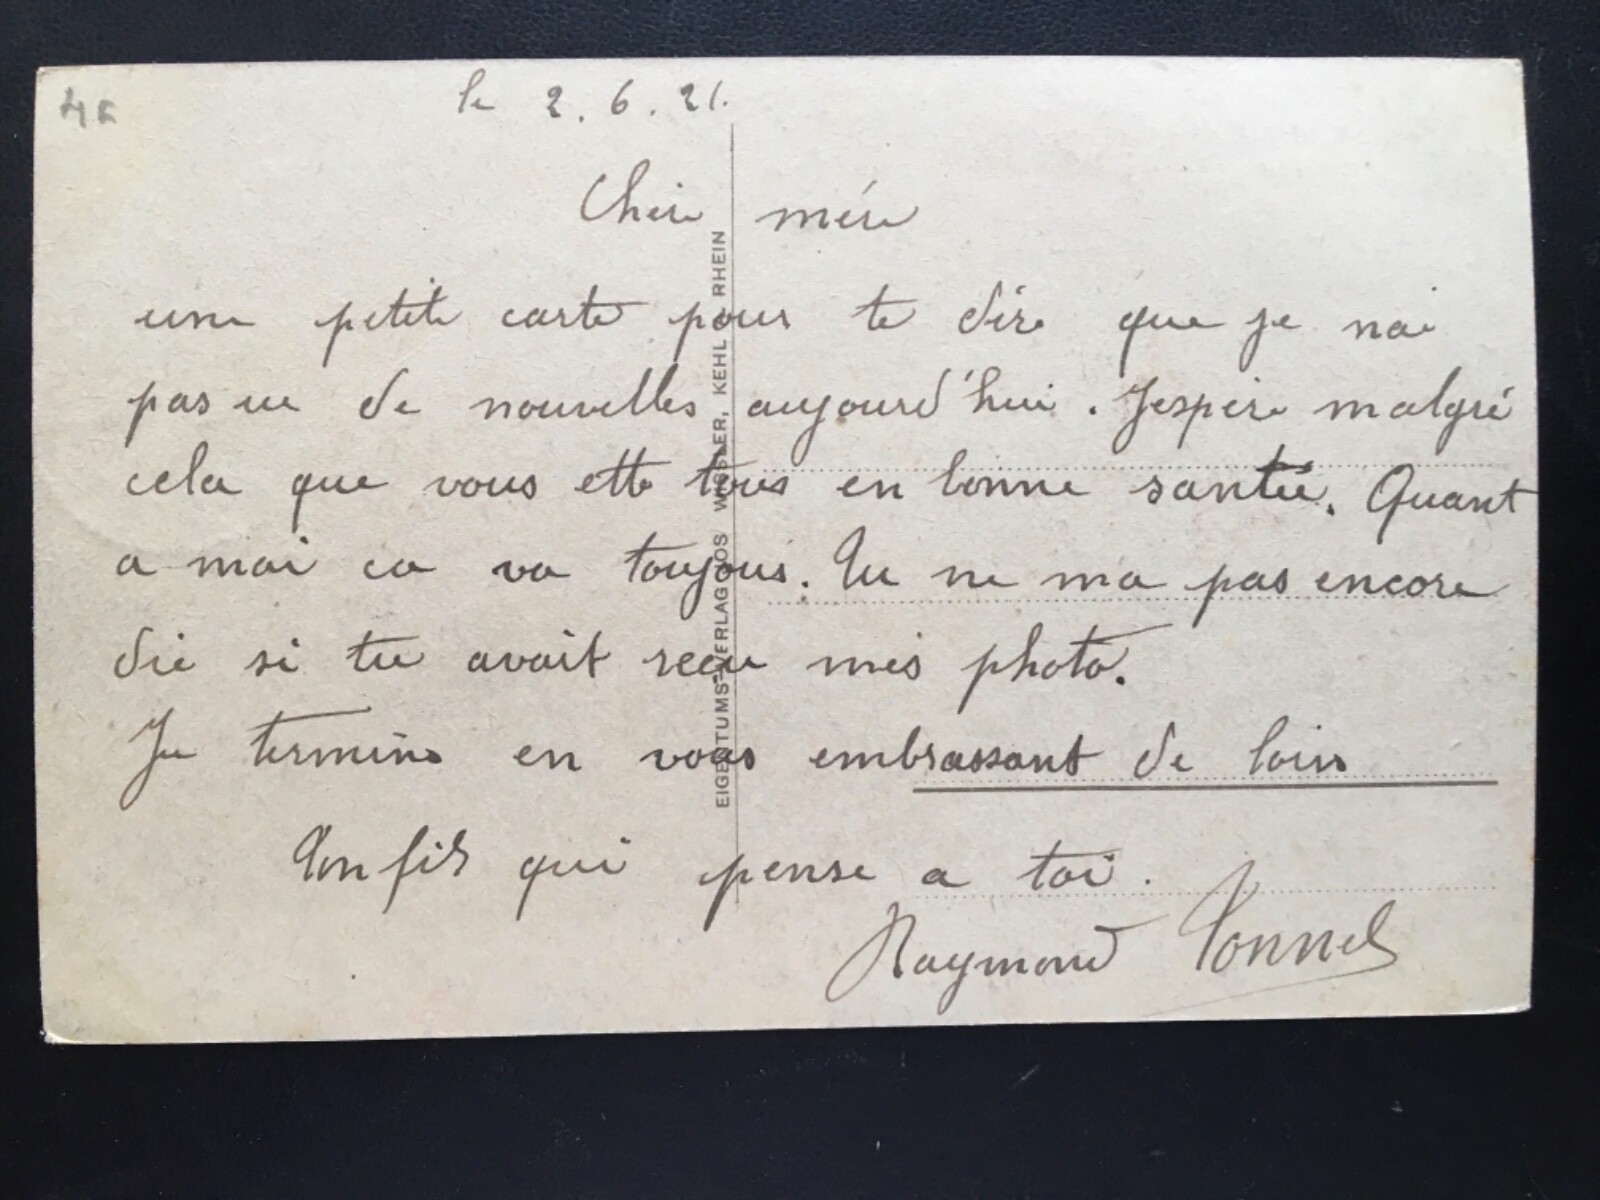 4€
le 2.6.21.
Chère mére
une petite carte pour te dire que je nai
pas ue de nouvelles aujourd'hui. Jespère malgré
cela que vous ette tous en bonne santée. Quant
a moi ca va toujous. Tu ne ma pas encore
die si tu avait recu mes photo.
Je termine en vous embrassant de loin
Ton fils qui pense a toi.
Raymond Tonnel
EIGENTUMS-VERLAG JOS WISSLER, KEHL A RHEIN